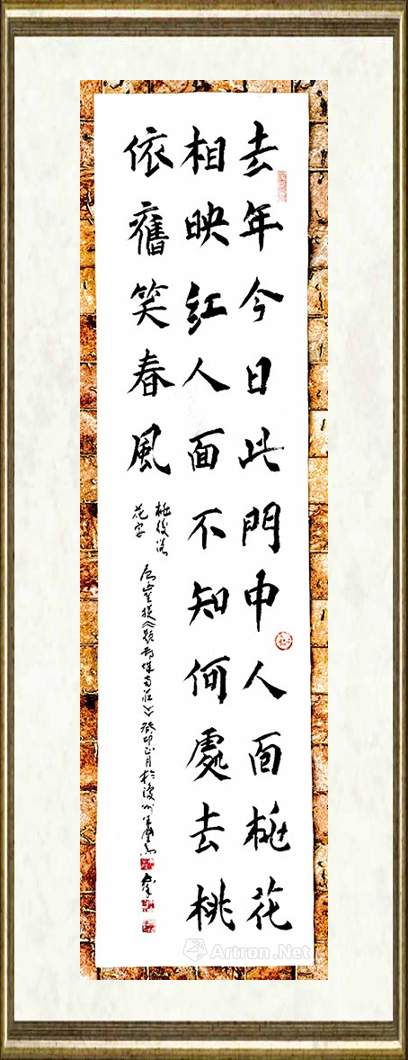 去年今日此門中人面桃花
相映紅人面不知何處去桃
依舊笑春風
桃後落
花字
唐崔護《題都城南莊》癸卯正月於
Artron.Net